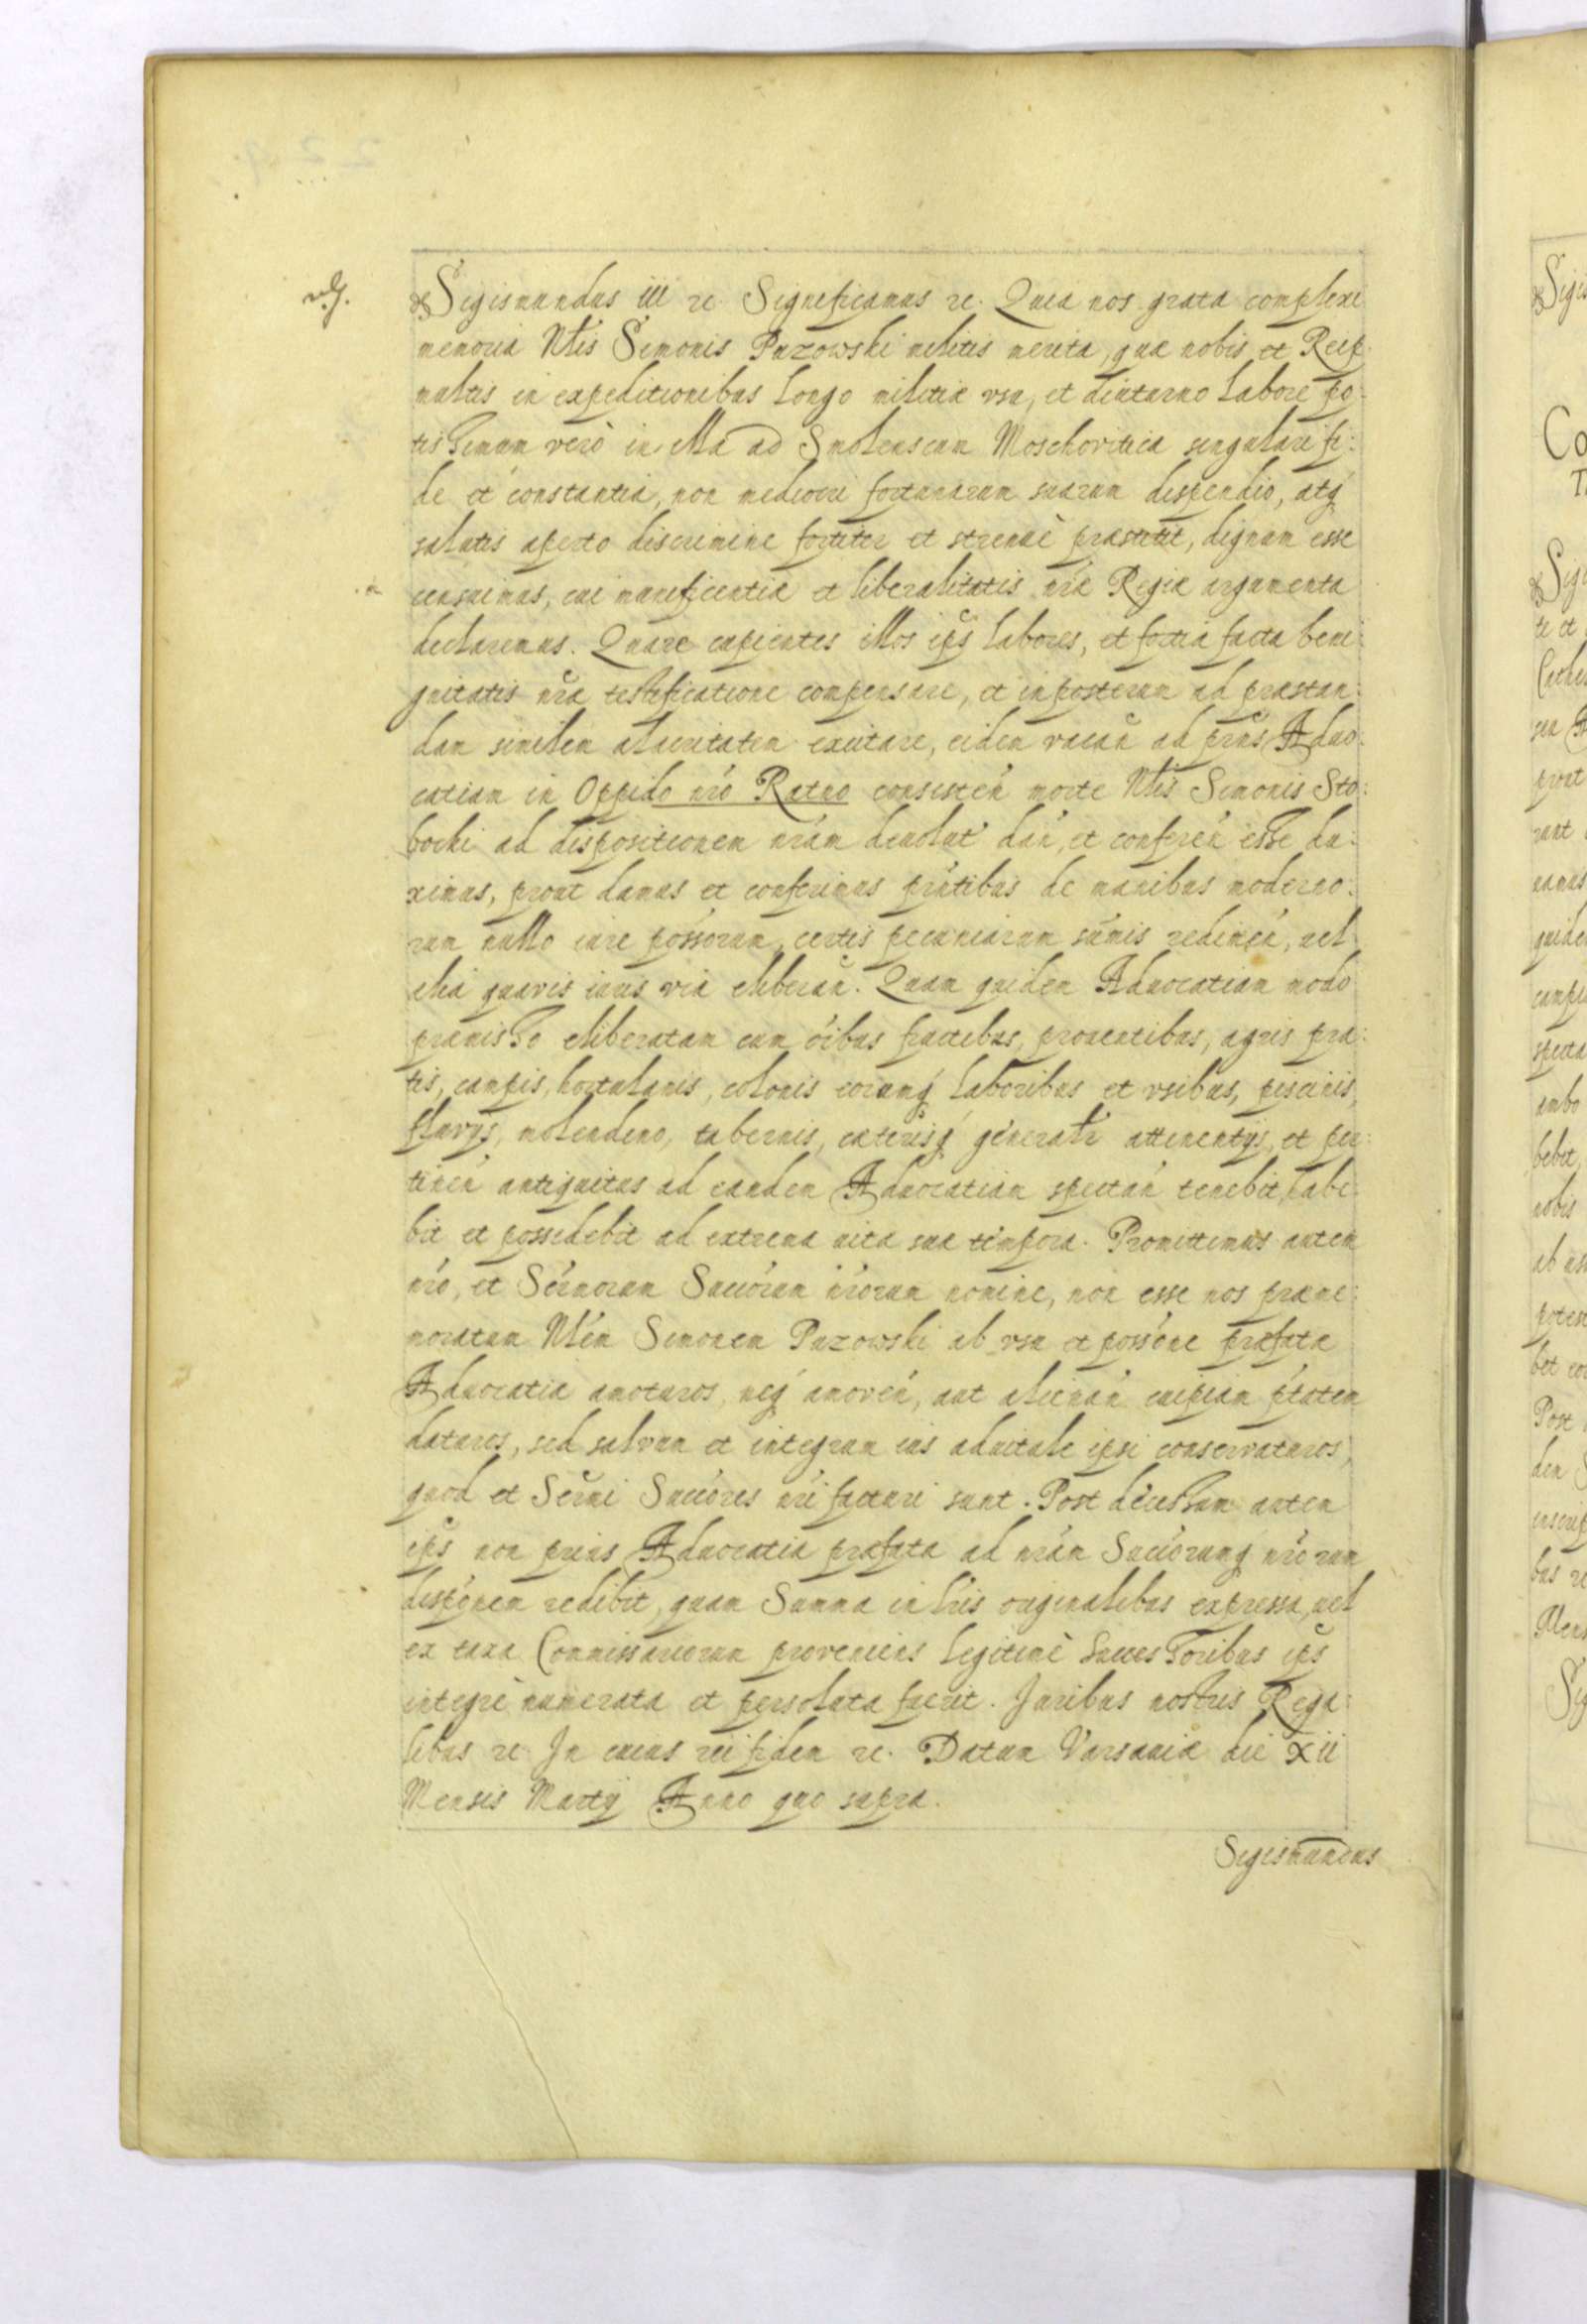 Sigismundus III rc Significamus rc. Quia nos grata complexi
memoria Nlis Simonis Puzowski militis merita, quæ nobis et Reip.
multis in expeditionibus longo militiæ vsu, et diuturno labore po:
tissimum verò in illa ad Smolenscum Moschovitica singulari fi:
de et constantia, non mediocri fortunarum suarum dispendio, atq́
salutis aperto discrimine fortiter et strenuè præstitit, dignum esse
censuimus, cui munificentiæ et liberalitatis nr̃æ Regiæ argumenta
declaremus. Quare cupientes illos ips̃ labores, et fortia facta beni:
gnitatis nr̃a testificatione compensare, et inposterum ad præstan:
dam similem alacritatem excitare, eidem vacañ ad pr̃ns Aduo:
catiam in Oppido nr̃o Ratno consisteñ morte Nlis Simonis Sto:
bocki ad dispositionem nr̃am deuolut́ dañ, et confereñ esse du:
ximus, prout damus et conferimus pr̃ntibus de manibus moderno:
rum nullo iure possor̃um, certis pecuniarum sum̃is redimeñ, vel
alia quavis iuris via eliberañ. Quam quidem Aduocatiam modo
præmisso eliberatam cum oĩbus fructibus, prouentibus, agris pra:
tis, campis, hortulanis, colonis eorumq́ laboribus et vsibus, piscinis,
fluvijs, molendino, tabernis, cæterisq́ generalr̃ attinentijs, et per:
tineñ antiquitus ad eandem Aduocatiam spectañ tenebit, habe:
bit et possidebit ad extrema uitæ suæ tempora. Promittimus autem
nr̃o, et Serñorum Succor̃um nr̃orum nomine, non esse nos præme:
moratum Nlem Simonem Puzowski ab vsu et possõne præfatæ
Aduocatiæ amoturos, neq́ amoveñ, aut alienañ cuipiam ptãtem
daturos, sed salvum et integrum ius aduitale ipsi conservaturos,
quod et Serñi Succor̃es nr̃i facturi sunt. Post decessum autem
ips̃ non prius Aduocatia præfata ad nr̃am Succor̃umq́ nr̃orum
dispõnem redibit, quam Summa in lr̃is originalibus expressa, uel
ex taxa Commissariorum proveniens legitimè Successoribus ips̃
integrè numerata et persoluta fuerit. Juribus nostris Rega:
libus rc. In cuius rei fidem rc. Datum Varsauiæ die XII
Mensis Martij Anno quo supra.
Sigismundus